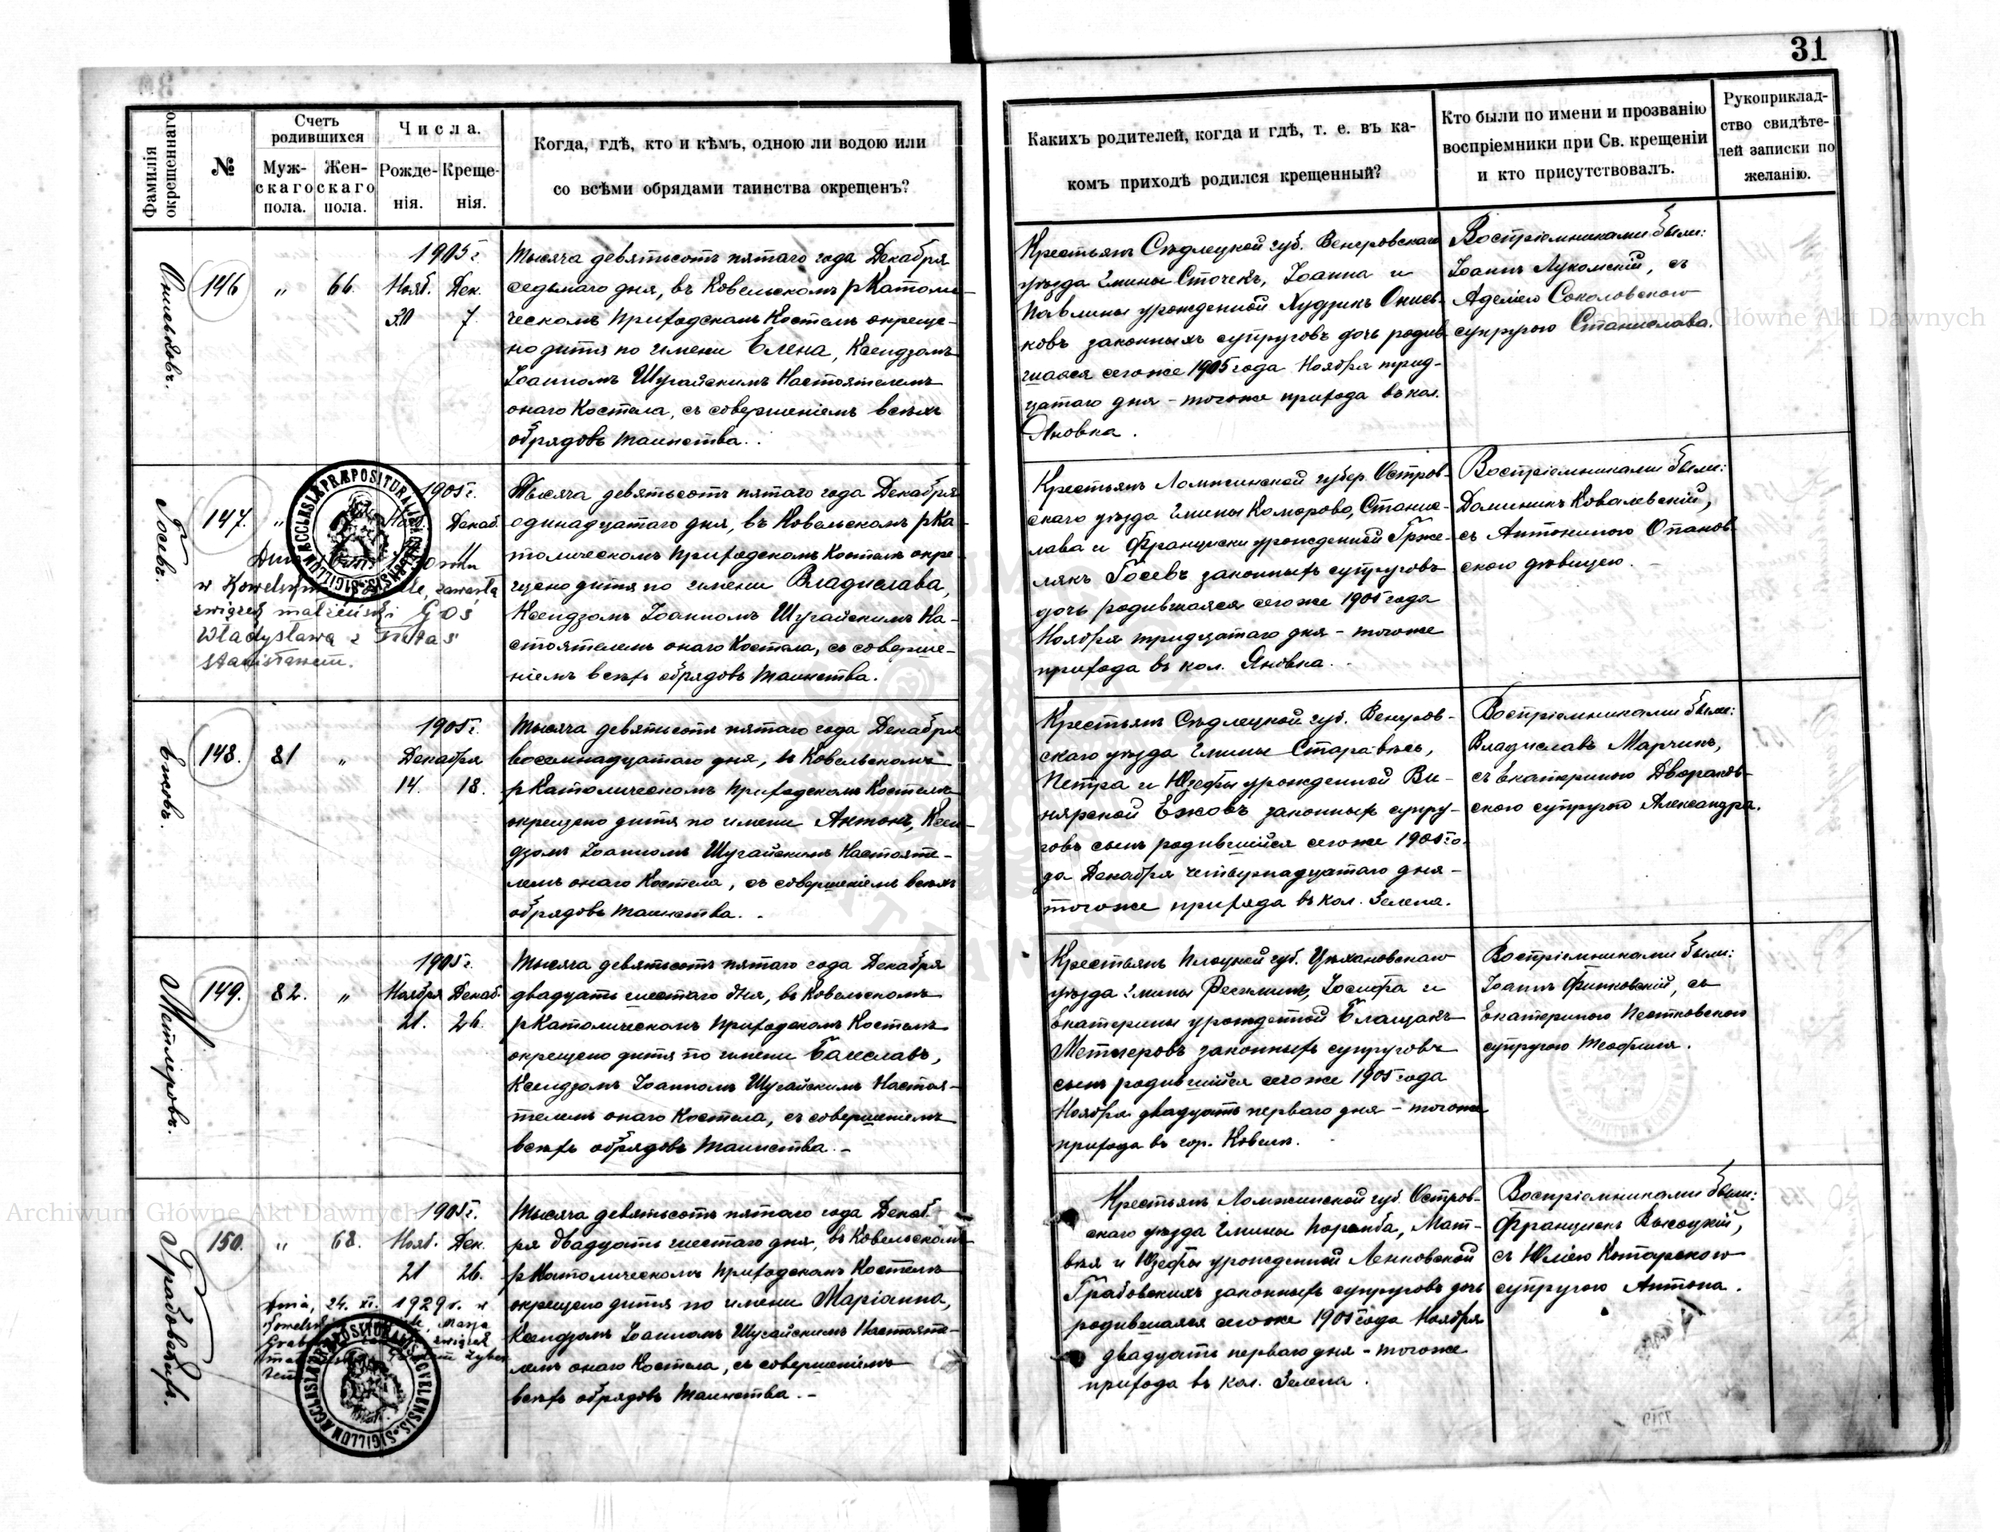 31
Фамилія окрещеннаго.
№
Счетъ родившихся
Мужскаго пола.
Женскаго пола.
Числа.
Рожденія.
Крещенія.
Когда, гдѣ, кто и кѣмъ, одною ли водою или
со всѣми обрядами таинства окрещенъ?
Какихъ родителей, когда и гдѣ, т. е. въ ка-
комъ приходѣ родился крещенный?
Кто были по имени и прозванію
воспріемники при Св. крещеніи
и кто присутствовалъ.
Рукоприклад-
ство свидѣте-
лей записки по
желанію.
146
"
66.
1905 г.
Нояб. Дек.
30 7.
Тысяча девятьсотъ пятаго года Декабря
седьмаго дня, въ Ковельскомъ рКатоли-
ческомъ Приходскомъ Костелѣ окреще-
но дитя по имени Елена, Ксендзомъ
Іоанномъ Шугайскимъ Настоятелемъ
онаго Костела, съ совершеніемъ всѣхъ
обрядовъ таинства.
Крестьянъ Сѣдлецкой губ. Венгровскаго
уѣзда гмины Сточекъ, Іоанна и
Павлины урожденной Худзикъ Онись-
ковъ законныхъ супруговъ дочь родив-
шаяся сегоже 1905 года Ноября трид-
цатаго дня - тогоже прихода въ кол.
Яновка.
Воспріемниками были:
Іоаннъ Лукомскій, съ
Аделію Соколовскою
супругою Станислава.
Госевъ.
147.
"
1905 г.
Нояб. Декаб.
11
w Kowelskim
związek małżeński Goś
Władysława z
Stanisławem.
Тысяча девятьсотъ пятаго года Декабря
одинадцатаго дня, въ Ковельскомъ рКа-
толическомъ Приходскомъ Костелѣ окре-
щено дитя по имени Владислава,
Ксендзомъ Іоанномъ Шугайскимъ На-
стоятелемъ онаго Костела, съ соверше-
ніемъ всѣхъ обрядовъ таинства.
Крестьянъ Ломжинской губер. Остров-
скаго уѣзда гмины Коморово, Станис-
лава и Франциски урожденной Грже-
лякъ Госевъ законныхъ супруговъ
дочь родившаяся сегоже 1905 года
Ноября тридцатаго дня - тогоже
прихода въ кол. Яновка.
Воспріемниками были:
Доминикъ Ковалевскій,
съ Антониною Опанов-
скою дѣвицею.
Ежовъ.
148.
81
"
1905 г.
Декабря
14. 18.
Тысяча девятьсотъ пятаго года Декабря
восемнадцатаго дня, въ Ковельскомъ
рКатолическомъ Приходскомъ Костелѣ
окрещено дитя по имени Антонъ, Ксен-
дзомъ Іоанномъ Шугайскимъ Настояте-
лемъ онаго Костела, съ совершеніемъ всѣхъ
обрядовъ таинства.
Крестьянъ Сѣдлецкой губ. Венгров-
скаго уѣзда гмины Старавѣсь,
Петра и Юзефы урожденной Ви-
нярской Ежовъ законныхъ супру-
говъ сынъ родившійся сегоже 1905 го-
да Декабря четырнадцатаго дня -
тогоже прихода въ кол. Зелена.
Воспріемниками были:
Владиславъ Марчикъ,
съ Екатериною Двораков-
скою супругой Александра.
149.
82.
"
1905 г.
Ноября Декаб.
21. 26.
Тысяча девятьсотъ пятаго года Декабря
двадцать шестаго дня, въ Ковельскомъ
рКатолическомъ Приходскомъ Костелѣ
окрещено дитя по имени Болеславъ,
Ксендзомъ Іоанномъ Шугайскимъ Настоя-
телемъ онаго Костела, съ совершеніемъ
всѣхъ обрядовъ таинства. -
Крестьянъ Плоцкой губ. Цѣхановскаго
уѣзда гмины Регимин, Іосифа и
Екатерины урожденной Блащакъ
законныхъ супруговъ
сынъ родившійся сегоже 1905 года
Ноября двадцать перваго дня - тогоже
прихода въ гор. Ковель.
Воспріемниками были:
Іоаннъ Финковскій, съ
Екатериною Піотковскою
супругою Теофиля.
Грабовскихъ.
150.
"
68.
1905 г.
Нояб. Дек.
21 26.
Dnia, 24. XI. 1929 r. w
Тысяча девятьсотъ пятаго года Декаб-
ря двадцать шестаго дня, въ Ковельскомъ
рКатолическомъ Приходскомъ Костелѣ
окрещено дитя по имени Маріанна,
Ксендзомъ Іоанномъ Шугайскимъ Настояте-
лемъ онаго Костела, съ совершеніемъ
всѣхъ обрядовъ таинства. -
Крестьянъ Ломжинской губ. Остров-
скаго уѣзда гмины Поремба, Мат-
вѣя и Юзефы урожденной Ленковской
Грабовскихъ законныхъ супруговъ дочь
родившаяся сегоже 1905 года Ноября
двадцать перваго дня - тогоже
прихода въ кол. Зелена.
Воспріемниками были:
Францискъ Высоцкій,
съ Юлію Которскою
супругою Антона.
Archiwum Główne Akt Dawnych
Archiwum Główne Akt Dawnych